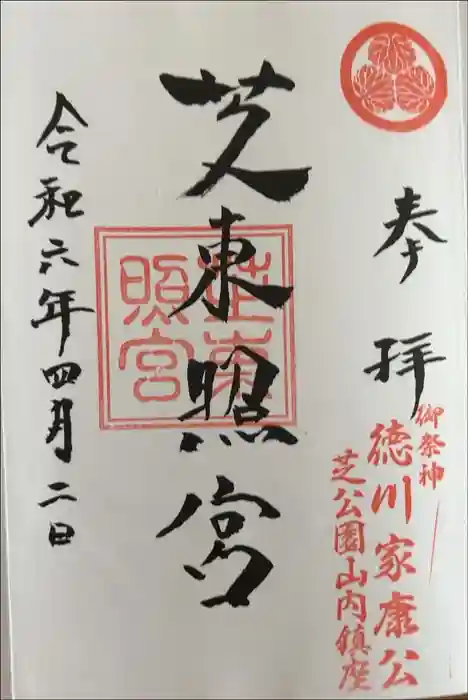 奉拝
御祭神
徳川家康公
芝公園山内鎮座
芝東照宮
芝東照宮
令和六年四月二日